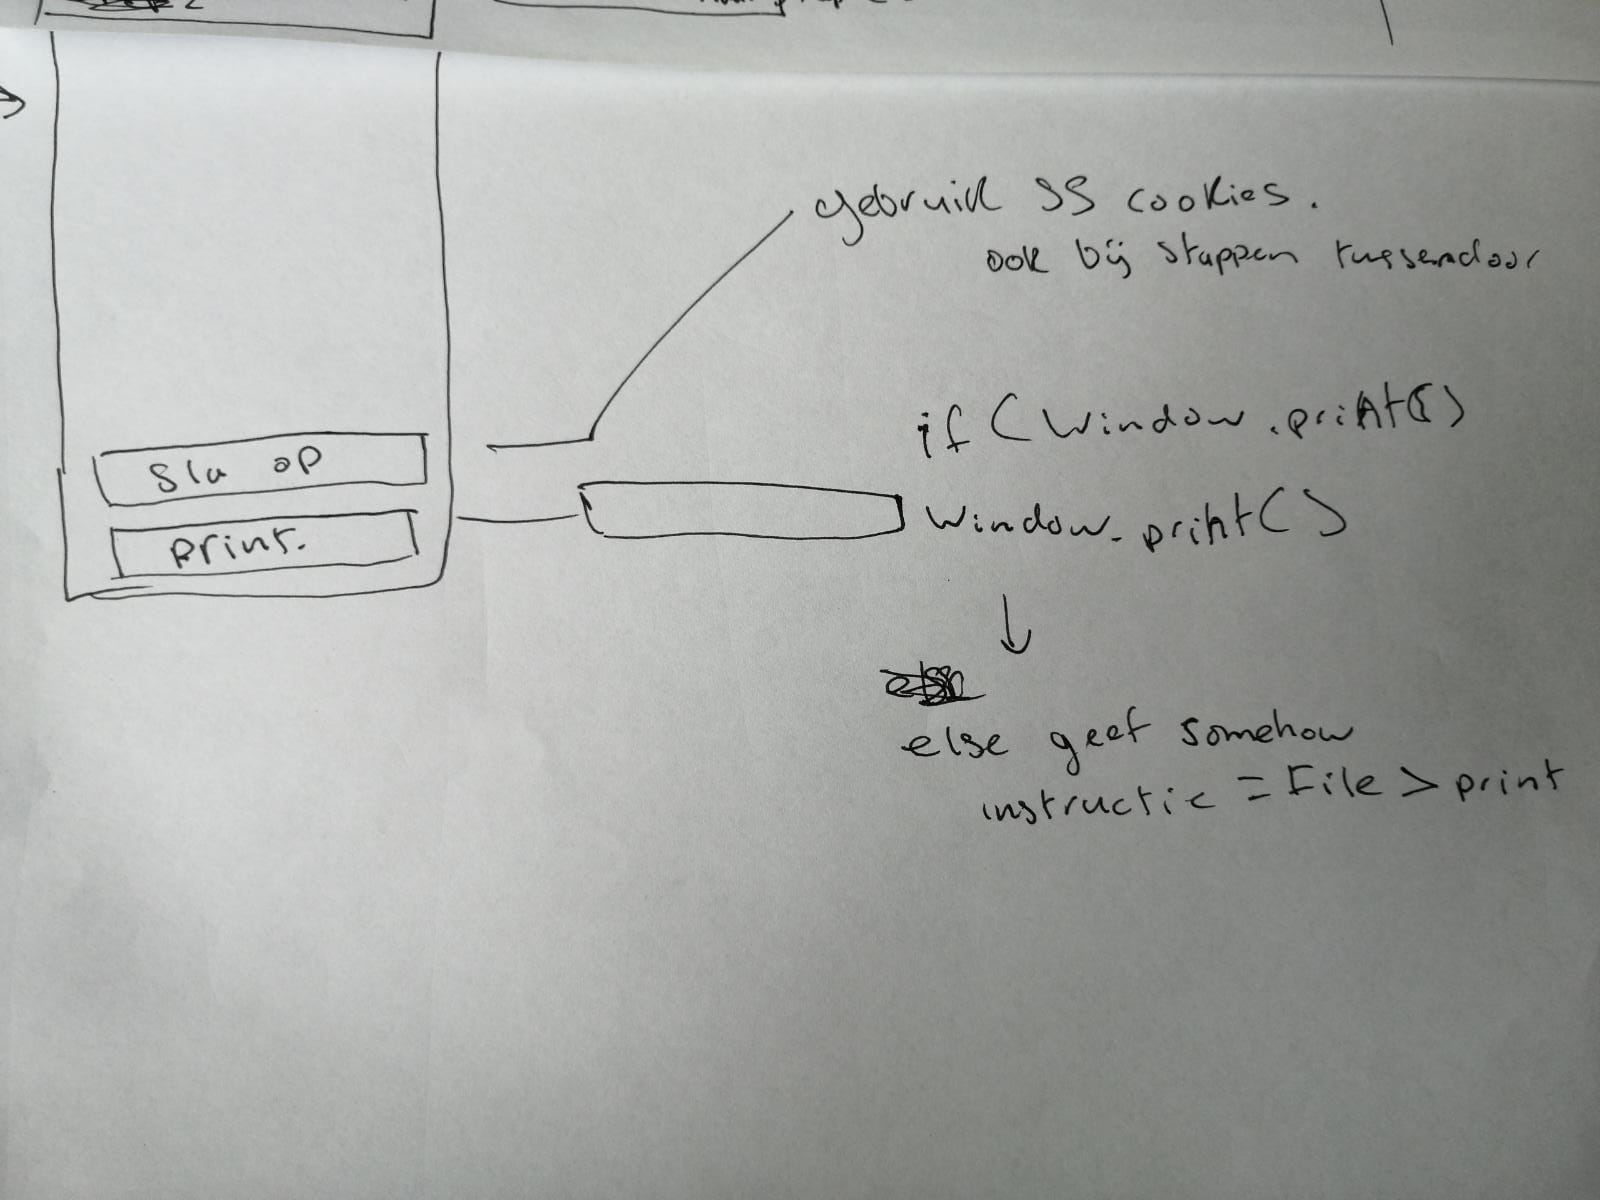 gebruik SS cookies.
ook bij stappen tussendoor
if (Window.print()
Sla op
Window.print()
print.
else geef somehow
instructie = File > print